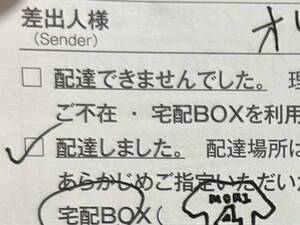 差出人様 オ
(Sender)
□ 配達できませんでした。 理
ご不在 ・ 宅配BOXを利用
□ 配達しました。 配達場所は
あらかじめご指定いただい
宅配BOX( MORI 4